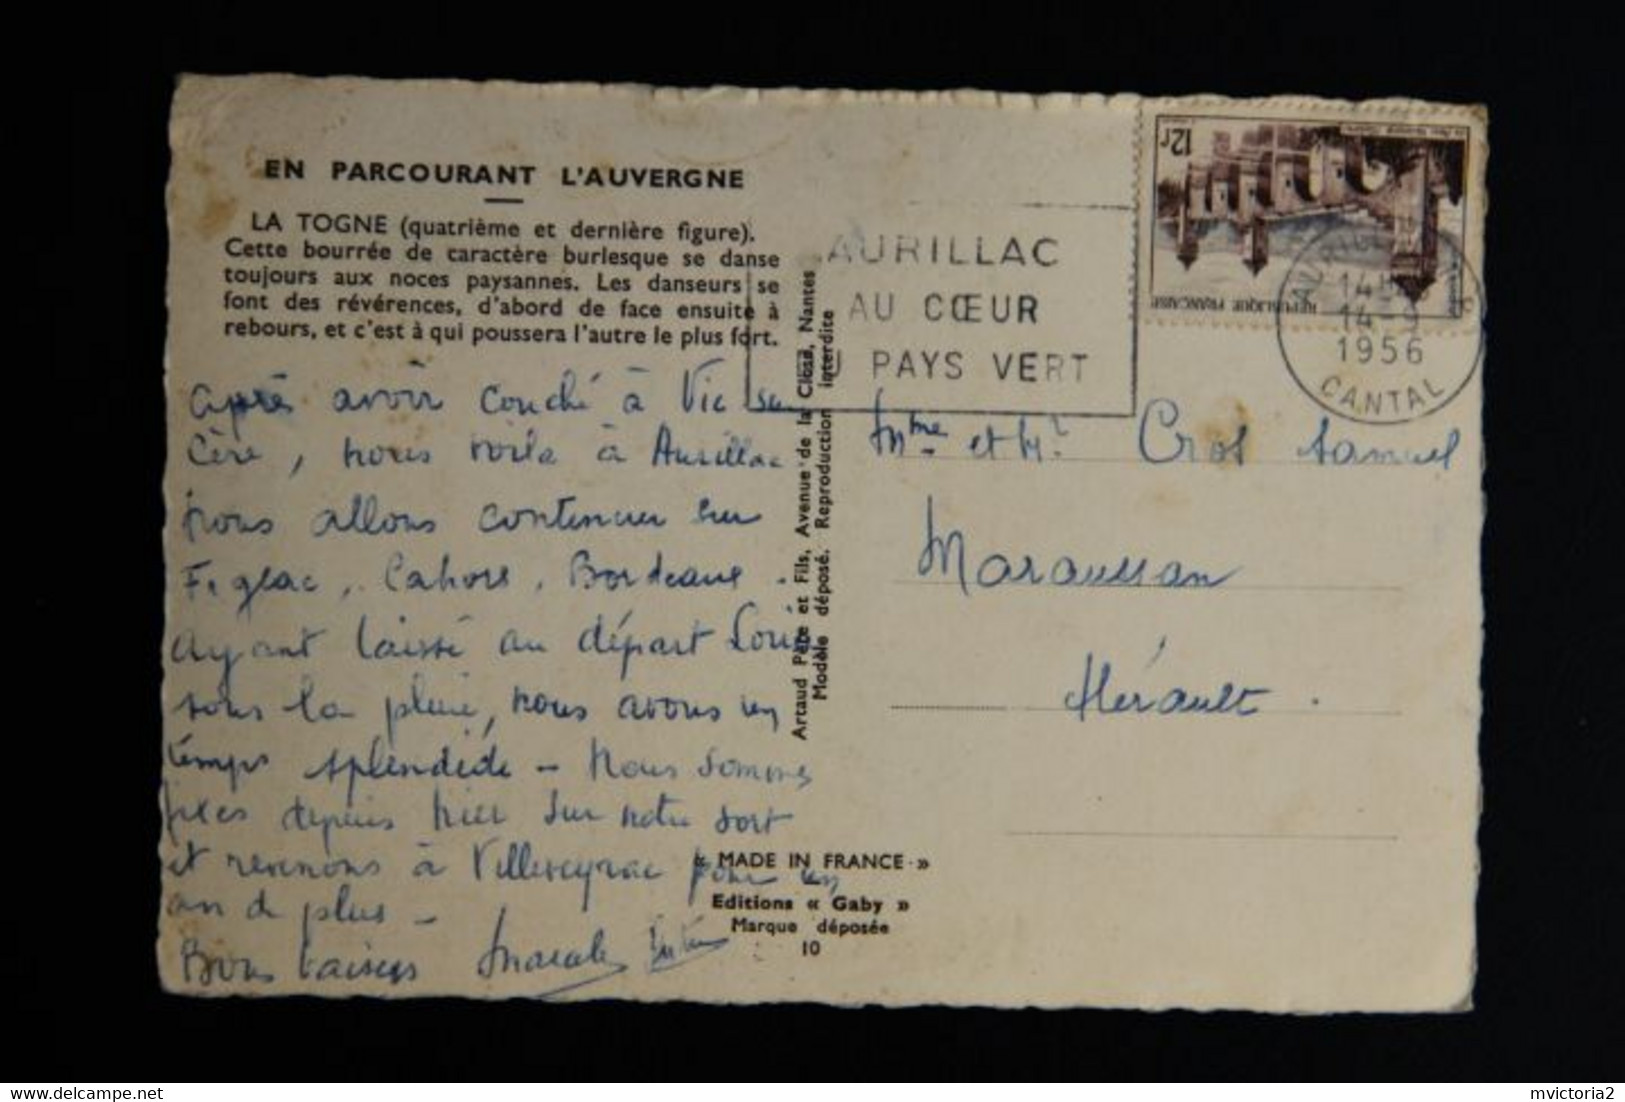 EN PARCOURANT L'AUVERGNE
LA TOGNE (quatrième et dernière figure).
Cette bourrée de caractère burlesque se danse
toujours aux noces paysannes. Les danseurs se
font des révérences, d'abord de face ensuite à
rebours, et c'est à qui poussera l'autre le plus fort.
après avoir couché à Vic sur
Cère, nous voilà à Aurillac
nous allons continuer sur
Figeac, Cahors, Bordeaux.
ayant laissé au départ
sous la pluie, nous avons un
temps splendide – Nous sommes
fixés depuis hier sur notre sort
et revenons à Villeveyrac pour un
an de plus –
Bons baisers
Artaud Père et Fils, Avenue de la Close, Nantes
Modèle déposé. Reproduction interdite
« MADE IN FRANCE »
Editions « Gaby »
Marque déposée
10
AURILLAC
AU CŒUR
DU PAYS VERT
12F
REPUBLIQUE FRANÇAISE
AURILLAC
14H
14
1956
CANTAL
Mme et Mr Cros Samuel
Maraussan
Hérault.
mvictoria2